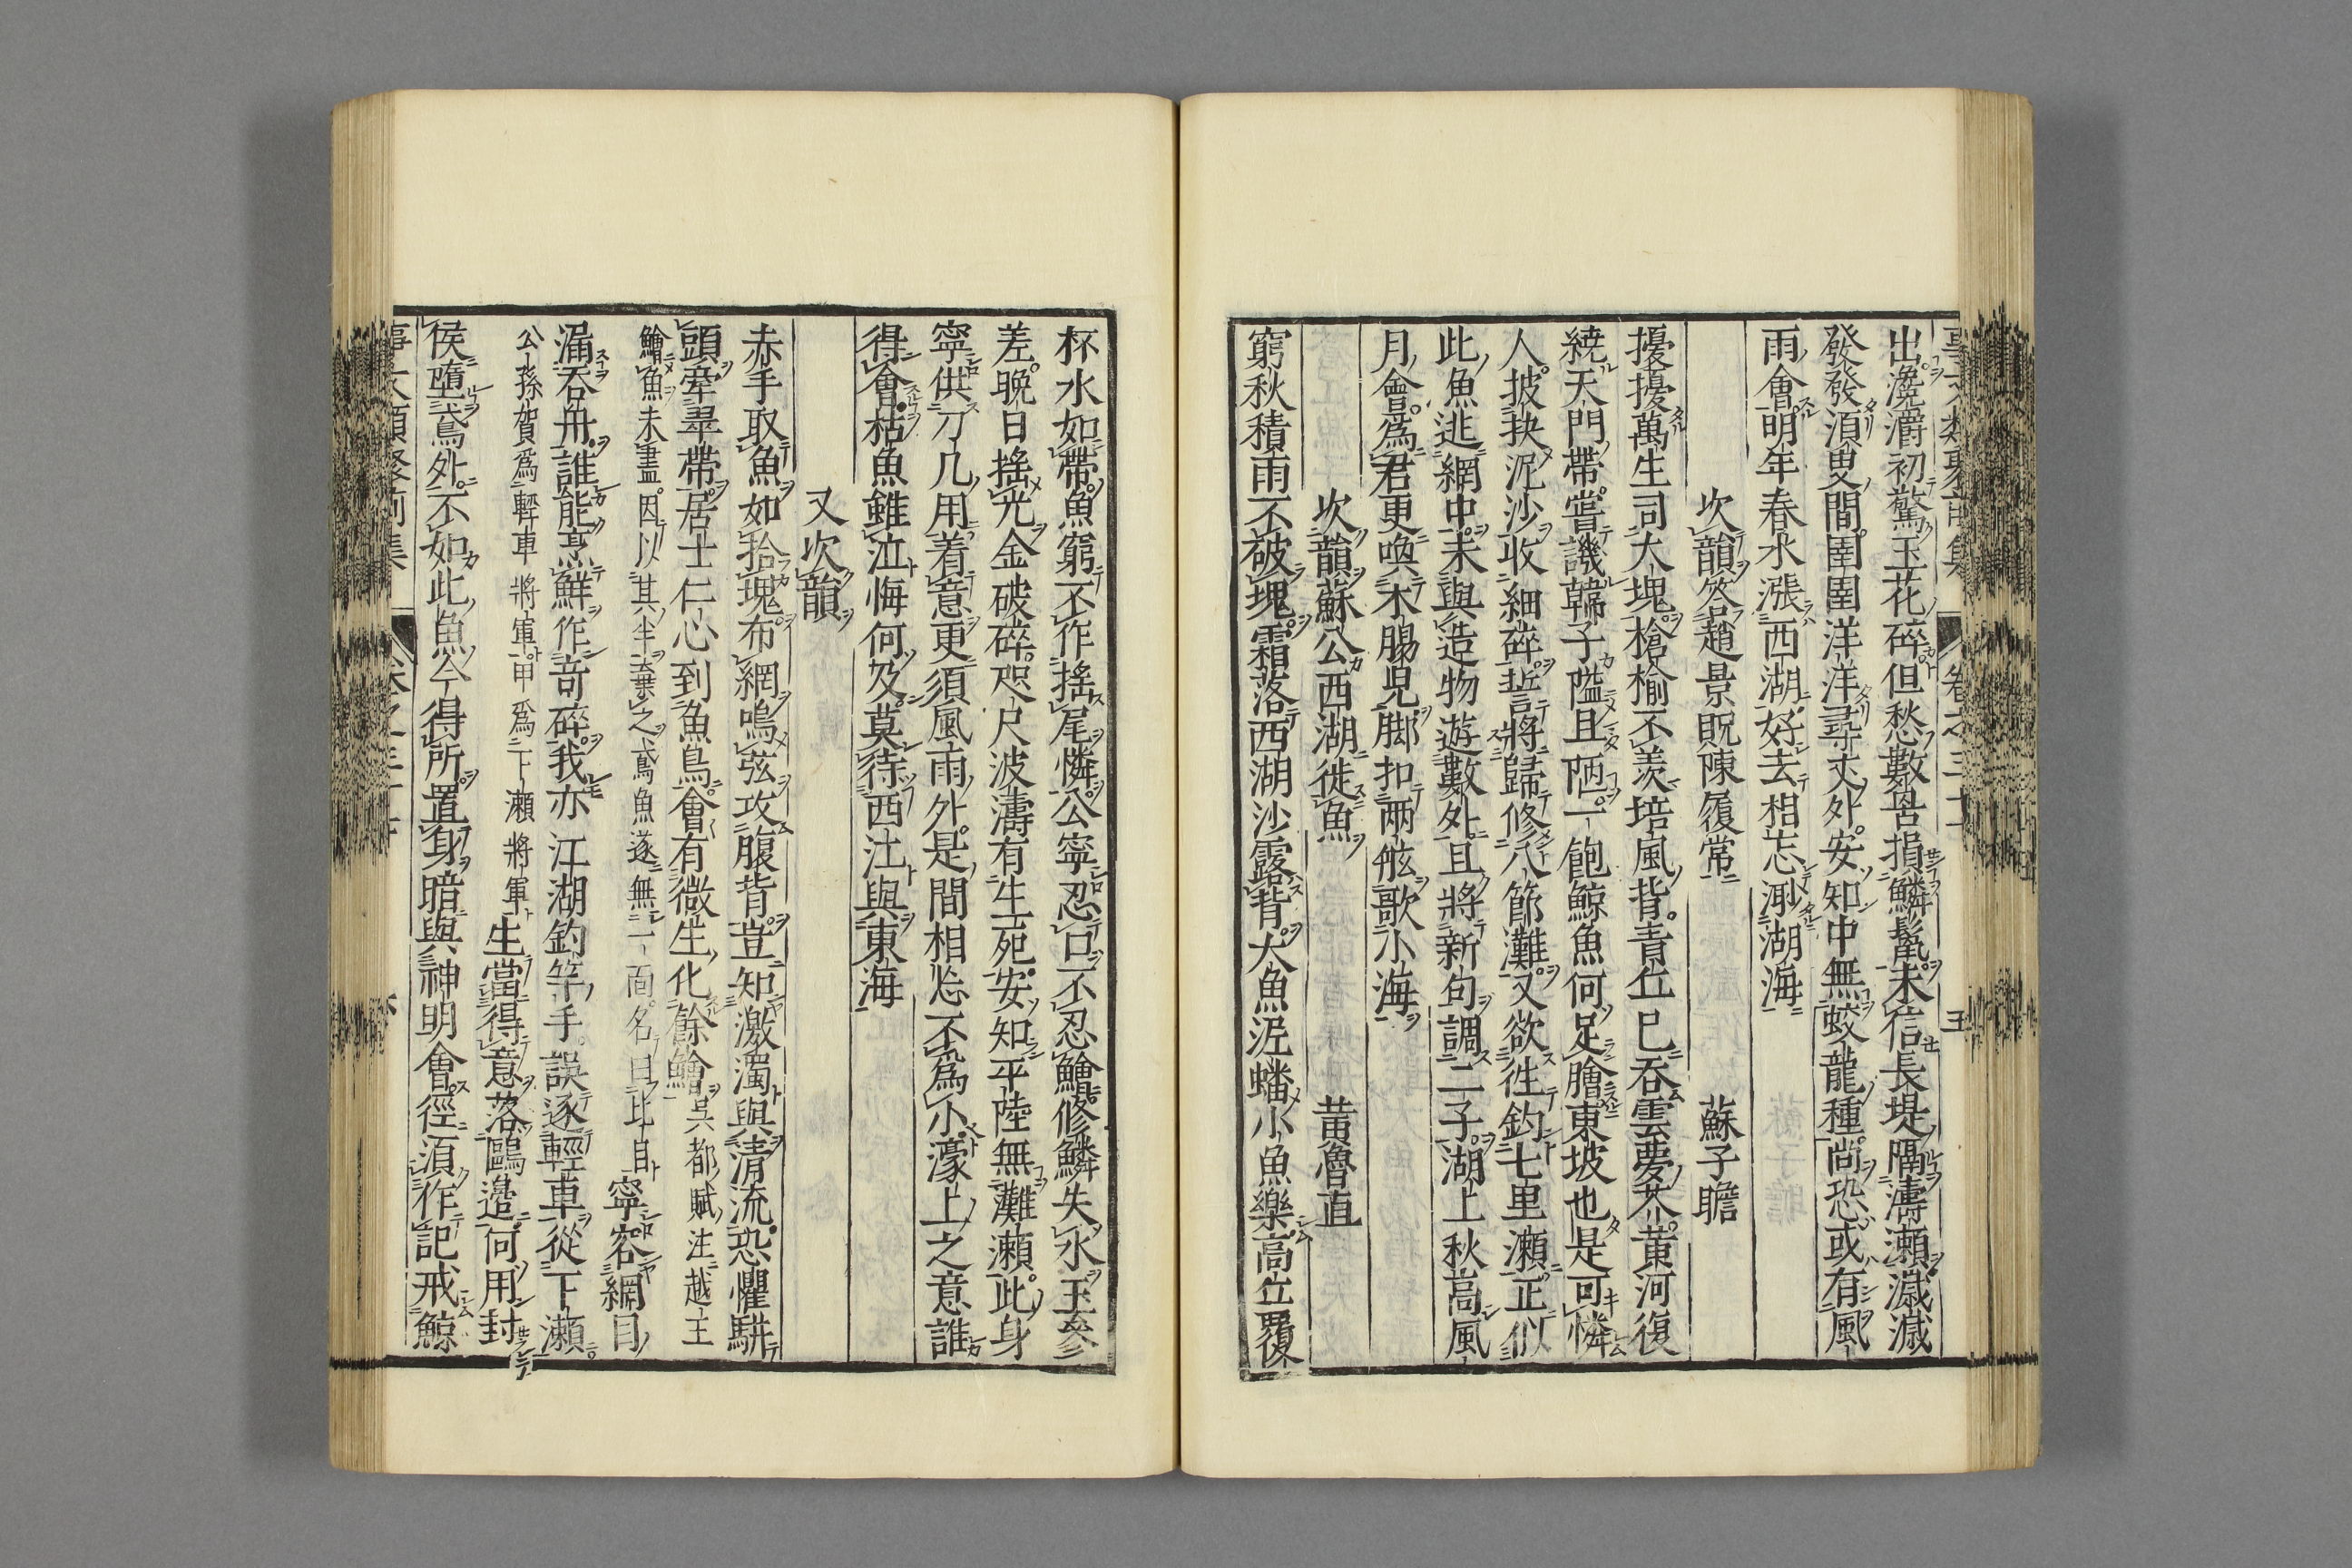 出瀺灂初驚玉花碎但愁數罟損鱗鬛未信長堤隔濤瀨濊濊
發發湏臾間圉圉洋洋尋𠀋外安知中無蛟龍種尚恐或有風
雨會明年春水漲西湖好去相忘渺湖海
次韻荅趙景貺陳履常　蘇子瞻
擾擾萬生司大塊槍榆不羡培風背青丘已吞雲夢芥黄河復
繞天門帶嘗譏韓子隘且陋一飽鯨魚何足膾東坡也是可憐
人披抉泥沙收細碎誓將歸修八節灘又欲徃釣七里瀨正似
此魚逃網中未與造物遊數外且將新句調二子湖上秋高風
月會爲君更喚木腸兒脚扣兩舷歌小海
次韻蘇公西湖徙魚　黄魯直
窮秋積雨不破塊霜落西湖沙露背大魚泥蟠小魚樂高丘覆
杯水如帶魚窮不作搖尾憐公寧忍口不忍鱠修鱗失水玉參
差晩日搖光金破碎咫尺波濤有生死安知平陸無灘瀨此身
寧供刀几用着意更須風雨外是間相忘不爲小濠上之意誰
得會枯魚雖泣悔何及莫待西江與東海
又次韻
赤手取魚如拾塊布網鳴弦攻腹背豈知激濁與清流恐懼駢
頭牽翠帶居士仁心到魚鳥會有微生化餘鱠吳都賦注越王
鱠魚未盡因以其半棄之爲魚遂無一面名曰比目寧容網目
漏吞舟誰能烹鮮作苛碎我亦江湖釣竿手誤逐輕車從下瀨
公孫賀爲輕車將軍甲爲下瀨將軍生當得意落鷗邉何用封
侯墮鳶外不如此魚今得所置身暗與神明會徑湏作記戒鯨